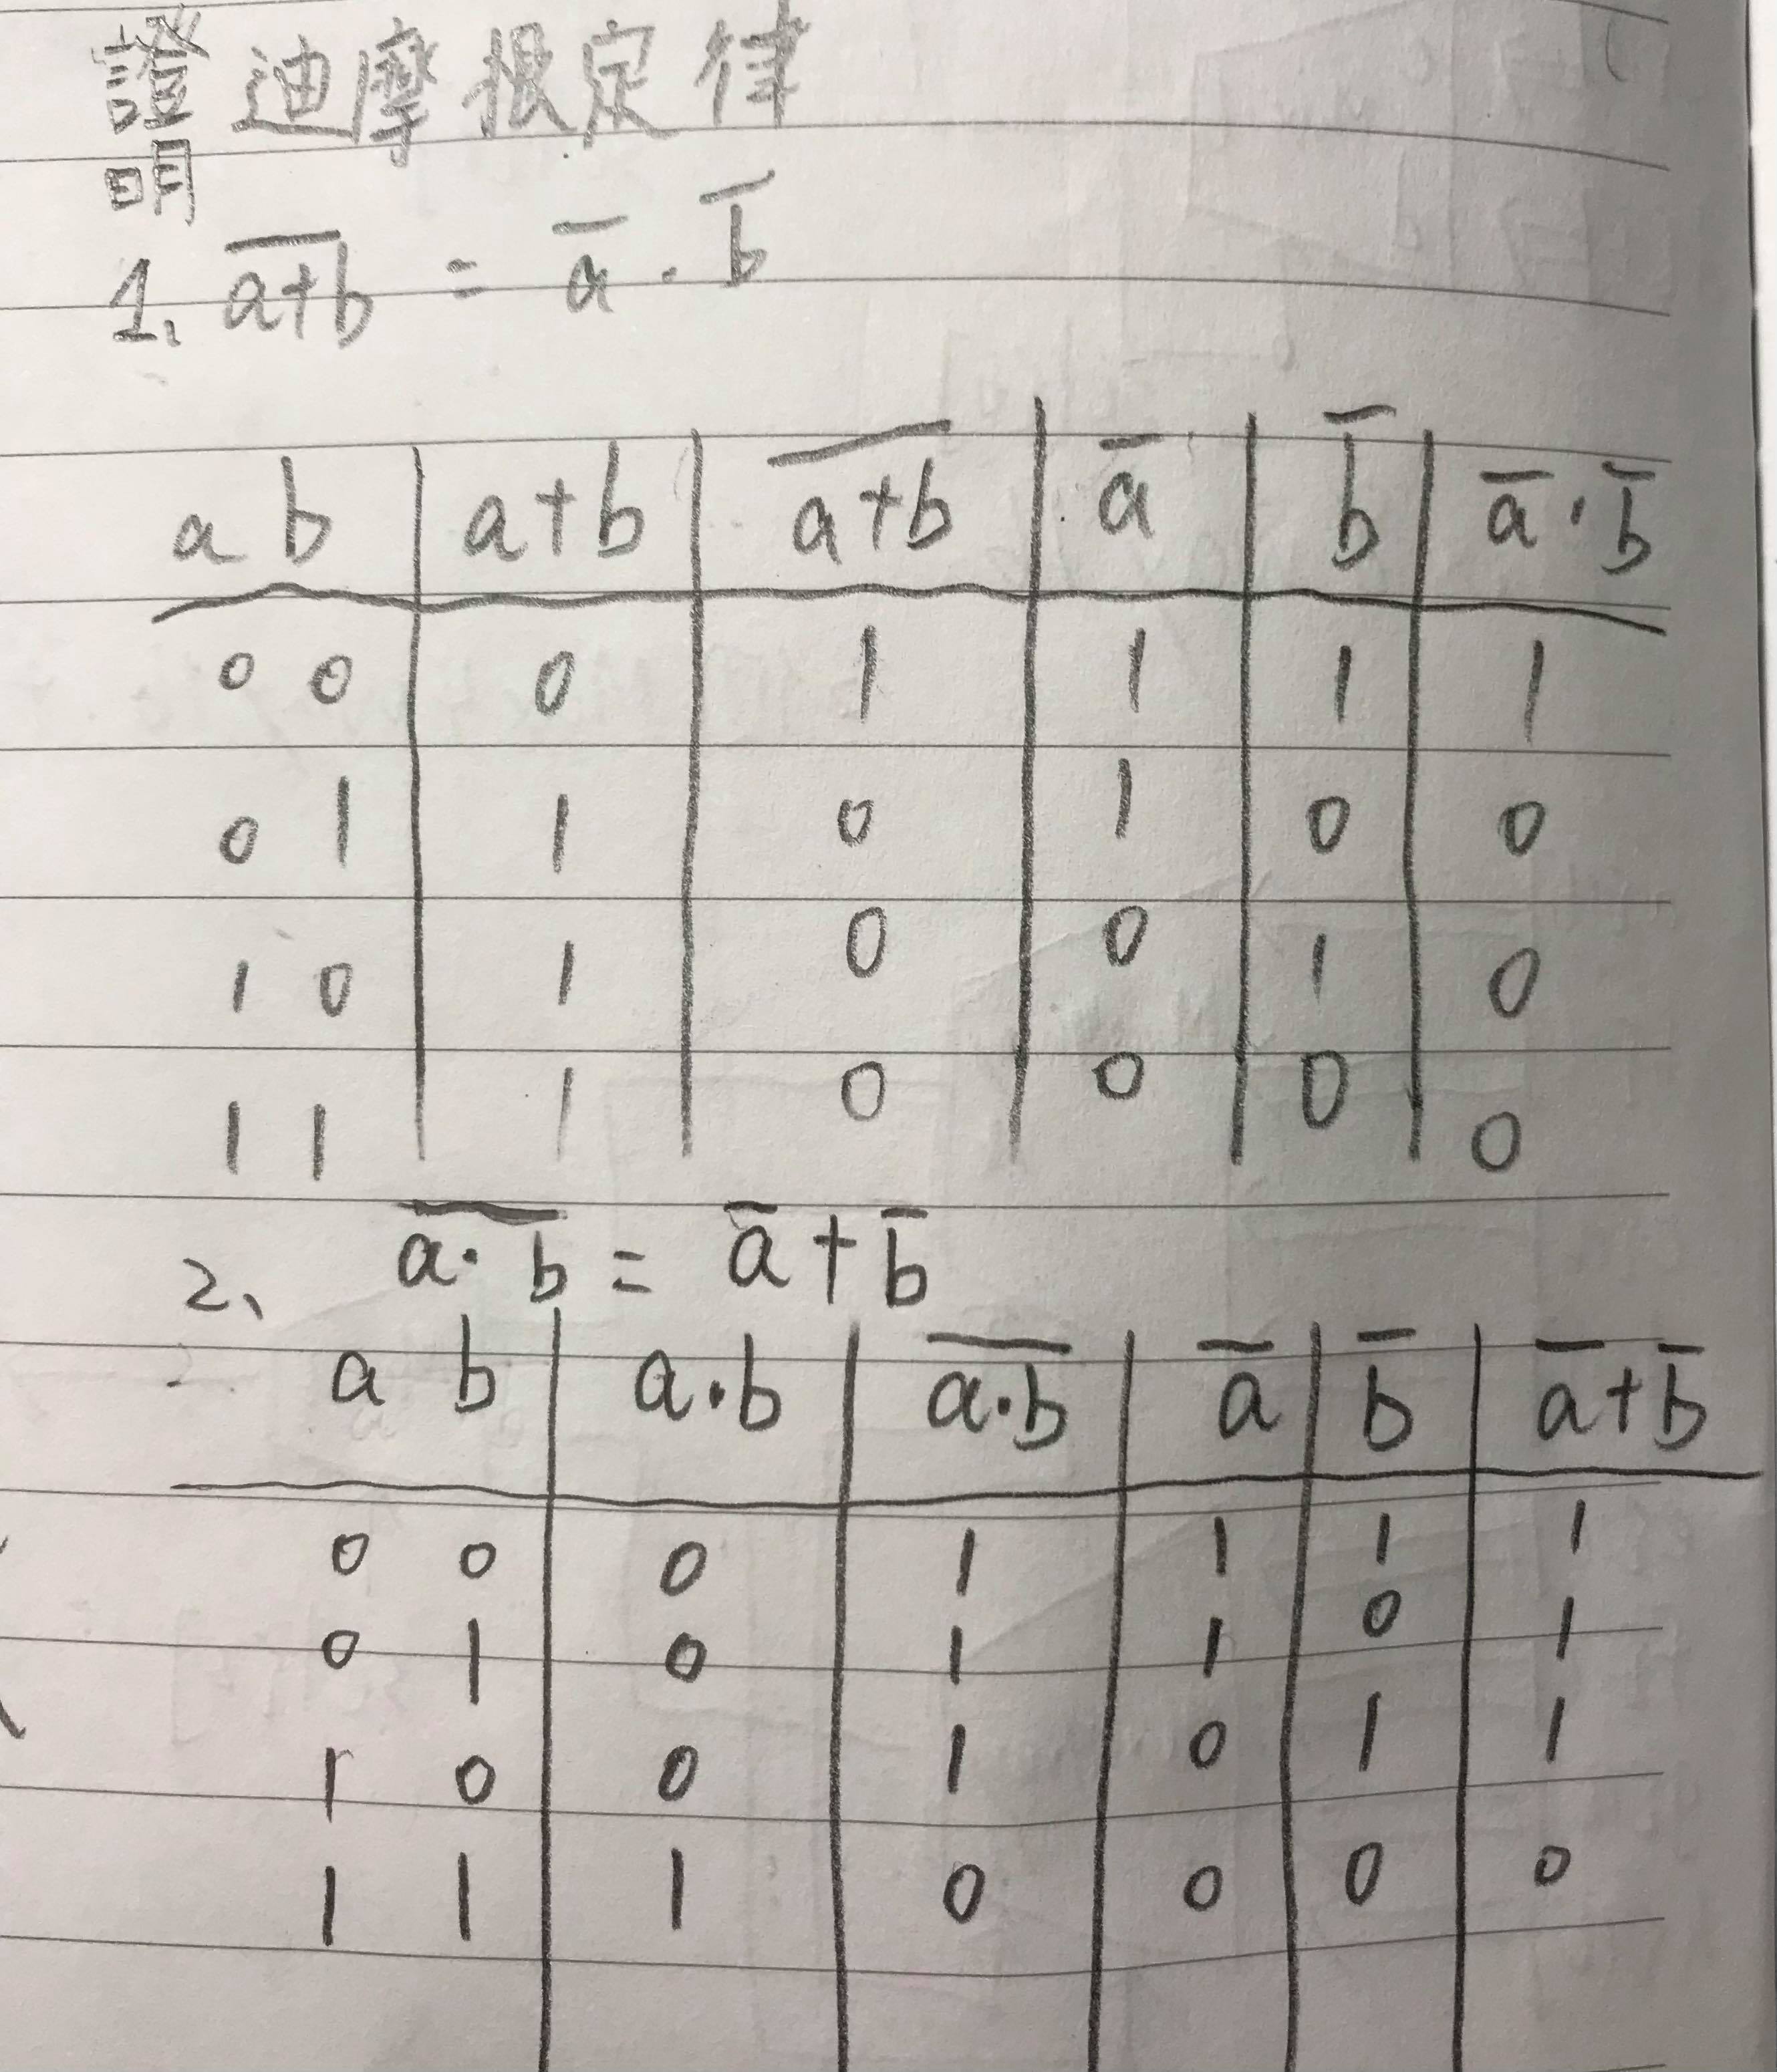 證明 迪摩根定律
1. a̅+̅b̅ = a̅ · b̅
a b | a+b | a̅+̅b̅ | a̅ | b̅ | a̅ · b̅
0 0 | 0 | 1 | 1 | 1 | 1
0 1 | 1 | 0 | 1 | 0 | 0
1 0 | 1 | 0 | 0 | 1 | 0
1 1 | 1 | 0 | 0 | 0 | 0
2、 a̅·̅b̅ = a̅ + b̅
a b | a·b | a̅·̅b̅ | a̅ | b̅ | a̅+b̅
0 0 | 0 | 1 | 1 | 1 | 1
0 1 | 0 | 1 | 1 | 0 | 1
1 0 | 0 | 1 | 0 | 1 | 1
1 1 | 1 | 0 | 0 | 0 | 0